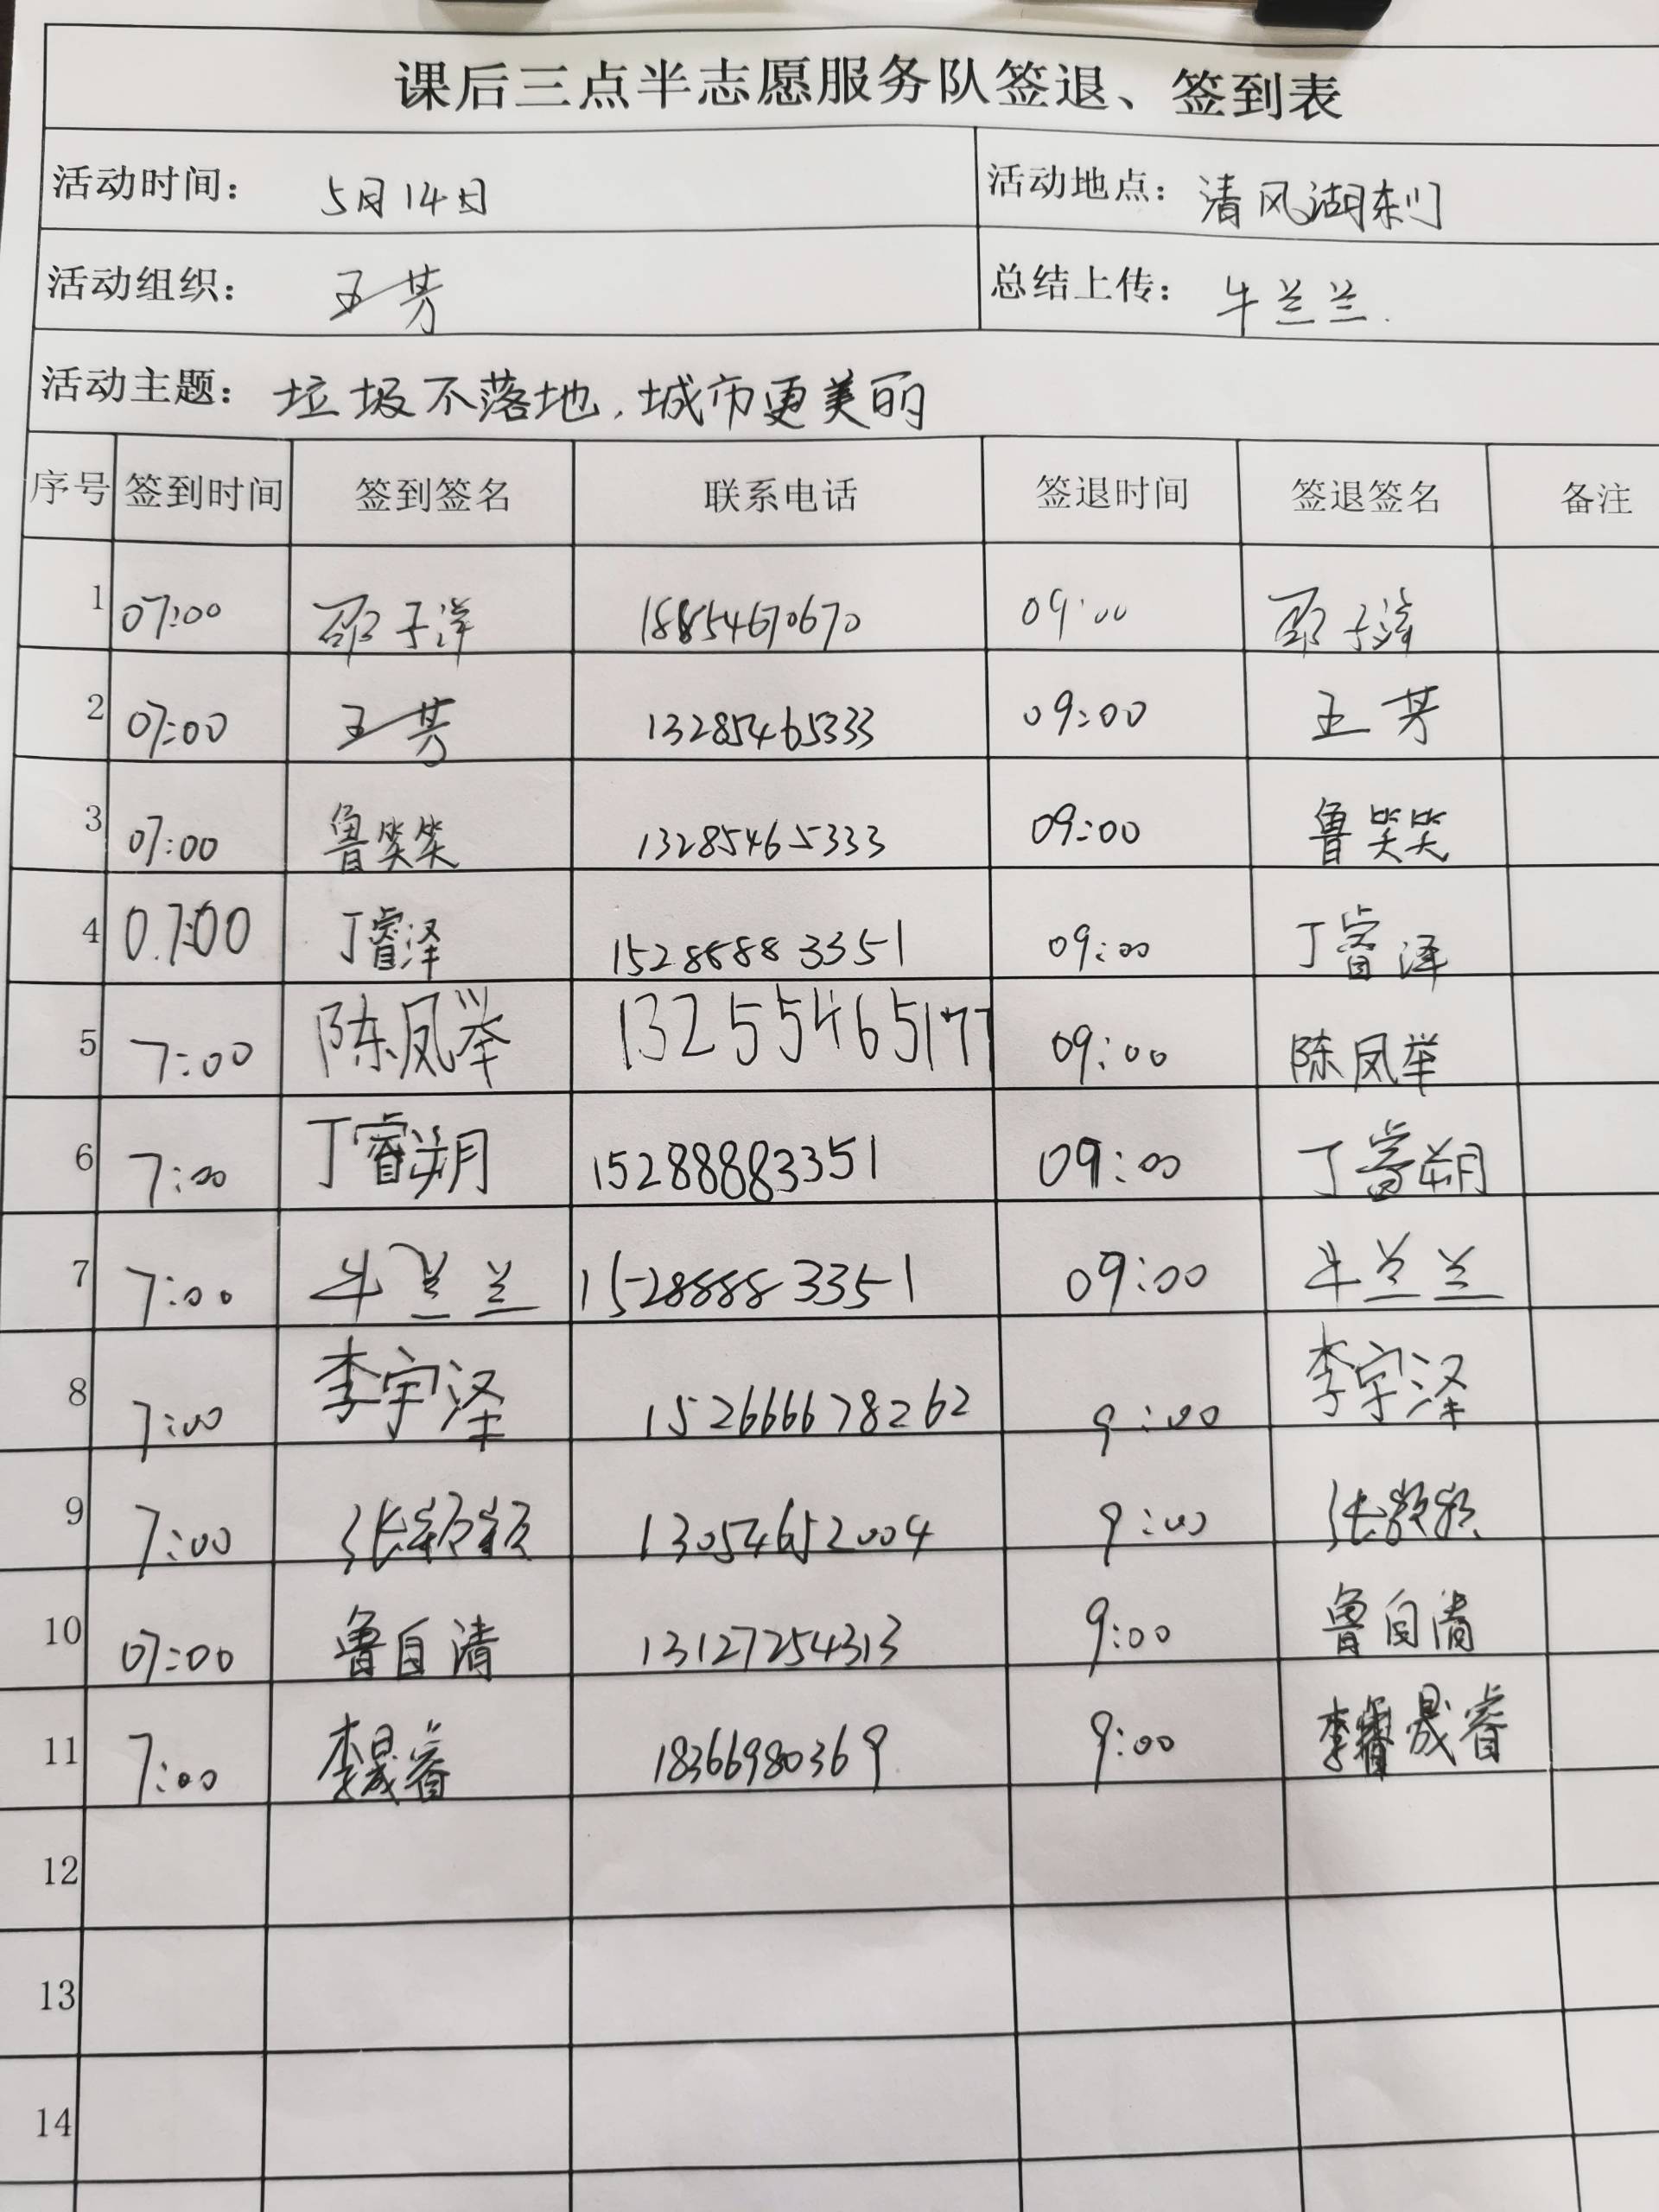 课后三点半志愿服务队签退、签到表
活动时间： 5月14日 活动地点：清风湖东门
活动组织： 王芳 总结上传： 牛兰兰.
活动主题：垃圾不落地,城市更美丽
序号 签到时间 签到签名 联系电话 签退时间 签退签名 备注
1 07:00 邵子洋 18854670670 09:00 邵子洋
2 07:00 王芳 13285465333 09:00 王芳
3 07:00 鲁笑笑 13285465333 09:00 鲁笑笑
4 07:00 丁睿泽 15288883351 09:00 丁睿泽
5 7:00 陈凤举 13255465177 09:00 陈凤举
6 7:00 丁睿朔 15288883351 09:00 丁睿朔
7 7:00 牛兰兰 15288883351 09:00 牛兰兰
8 7:00 李宇泽 15266678262 9:00 李宇泽
9 7:00 张颖颖 13054652004 9:00 张颖颖
10 07:00 鲁自清 13127254313 9:00 鲁自清
11 7:00 李晟睿 18366980369 9:00 李晟睿
12
13
14